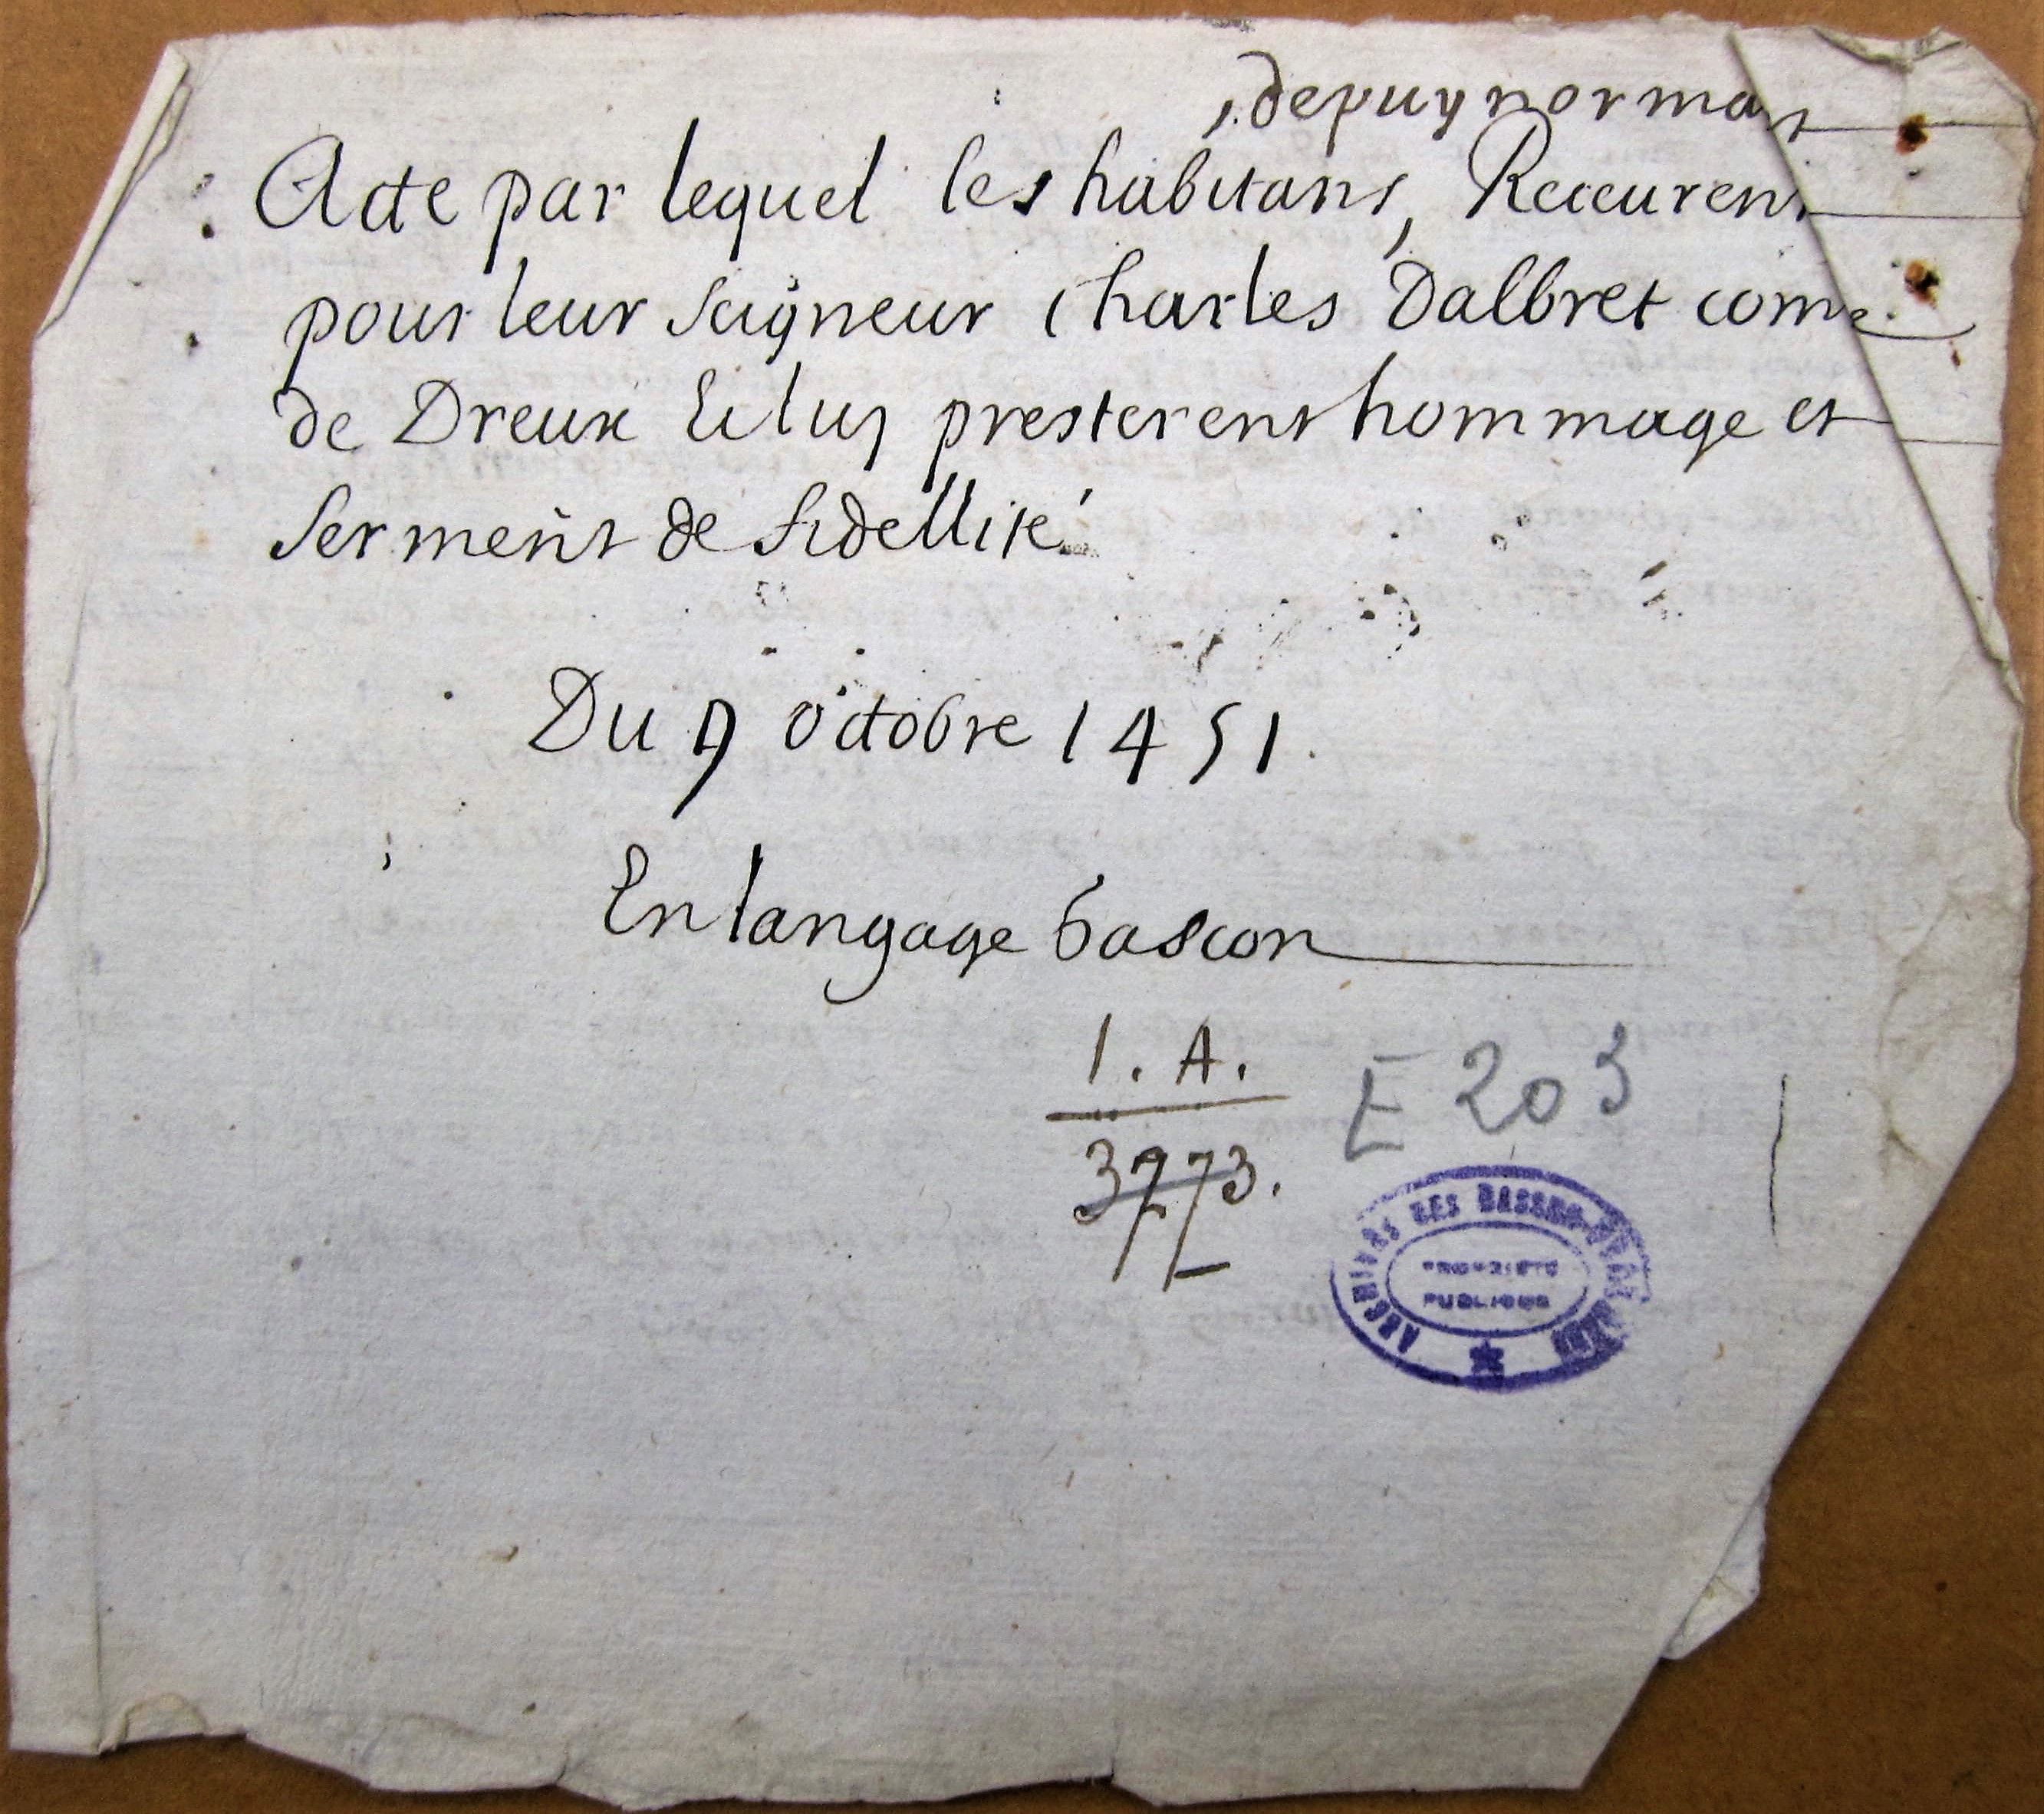 depuynorman
Acte par lequel les habitans, Receurent
pour leur seigneur charles Dalbret come
de Dreux Et luy presterent hommage et
serment de fidellité
Du 9 octobre 1451.
En langage Gascon
1. A.
3773.
E 203
ARCHIVES DES BASSES-PYRÉNÉES
PROPRIÉTÉ
PUBLIQUE